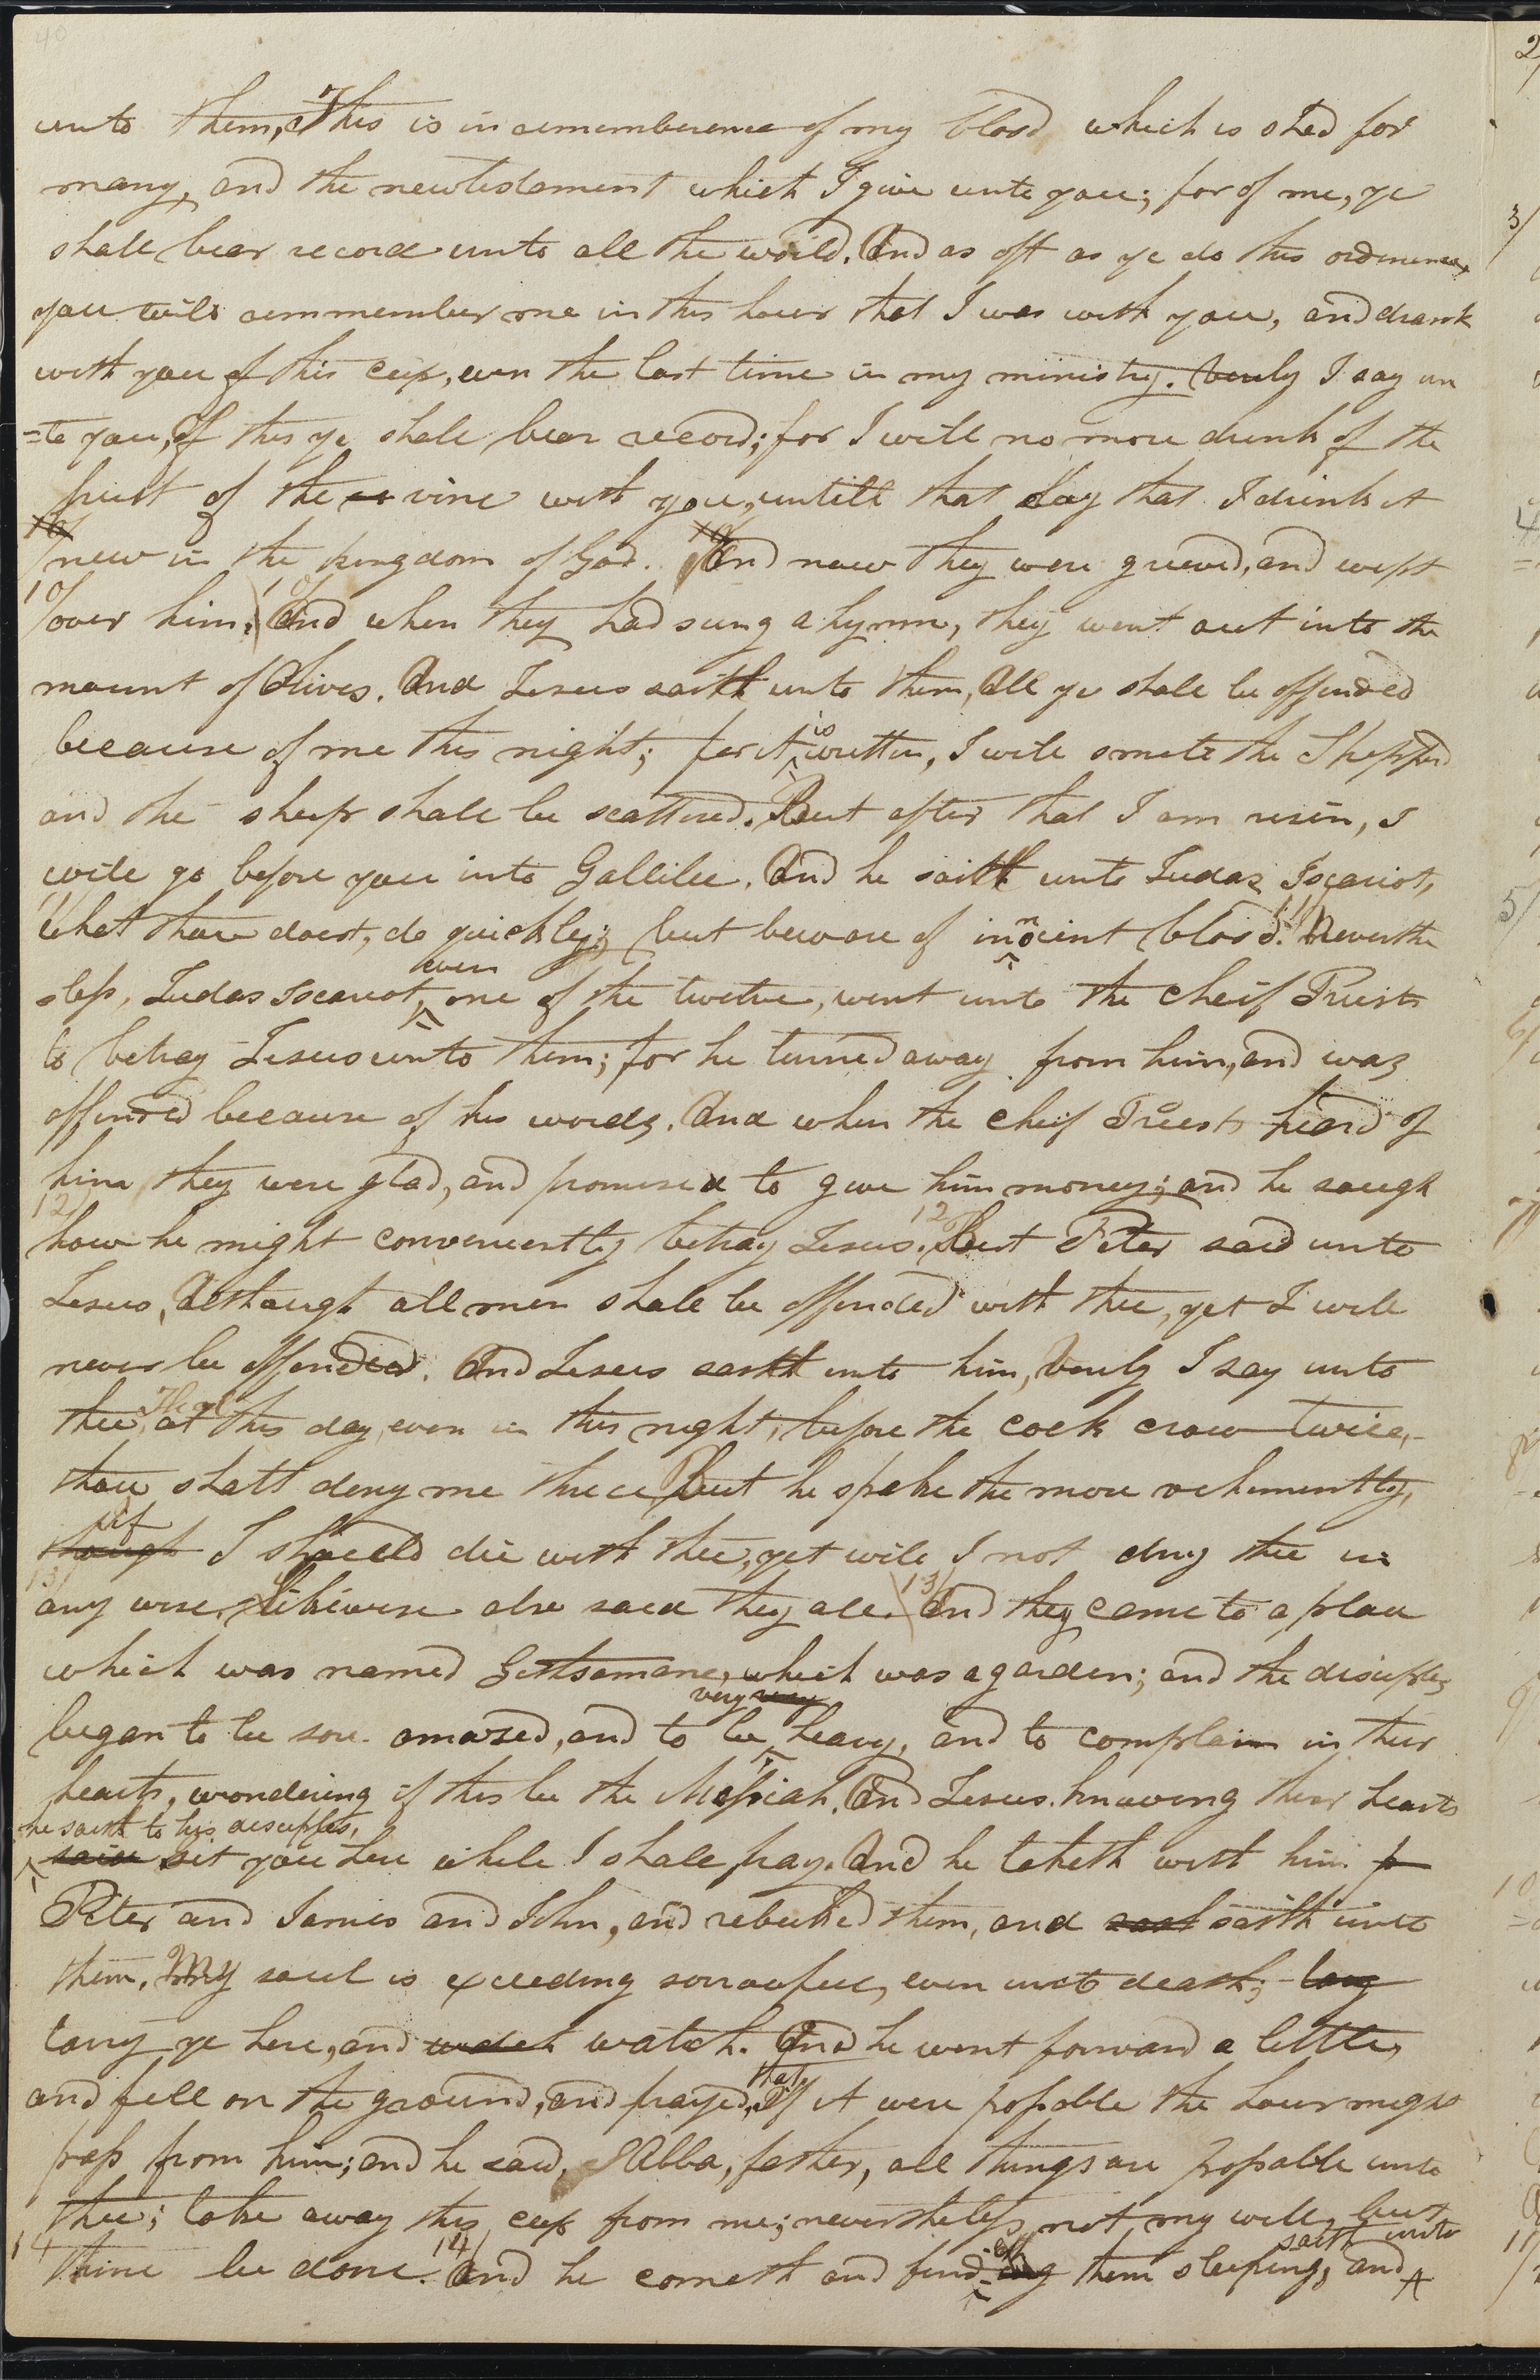 40
unto them, This is in rememberence of my blood which is shed for
many, and the new testament which I give unto you; for of me, ye
shall bear record unto all the world. And as oft as ye do this ordinence,
you will remmember me in this hour that I was with you, and drank
with you of this cup, even the last time in my ministry. Verily I say un
=to you, Of this ye shall bear record; for I will no more drink of the
fruit of the vine with you, untill that day that I drink it
10/ new in the kingdom of God. 10/ And now they were grieved, and wept
10/ over him. 10/ And when they had sung a hymn, they went out into the
mount of Olives. And Jesus saith unto them, All ye shall be offended
because of me this night; for it is written, I will smite the Shepperd
and the sheep shall be scattered. But after that I am risen, I
will go before you into Gallilee. And he saith unto Judas Iscariot,
11/ What thou doest, do quickly; but beware of innocint blood. 11/ Neverthe
=less, Judas Iscariot, even one of the twelve, went unto the cheif Priests
to betray Jesus unto them; for he turned away from him, and was
offended because of his words. And when the cheif Priests heard of
him they were glad, and promised to give him money; and he saugh
12/ how he might conveniently betray Jesus. 12 But Peter said unto
Jesus, Although all men shall be offended with thee, yet I will
never be offended. And Jesus saith unto him, Verily I say unto
thee, That this day, even in this night, before the cock crow twice,
thou shalt deny me thrice, But he spake the more vehemently,
though if I should die with thee, yet will I not deny thee in
13/ any wise. Likewise also said they all. 13/ And they came to a place
which was named Gethsamane, which was a garden; and the disciples
began to be sore amazed, and to be very very heavy, and to complain in their
hearts, wondering if this be the Messiah. And Jesus knowing their hearts
he saith to his disciples,
said sit you here while I shall pray. And he taketh with him p
Peter and James and John, and rebuked them, and said saith unto
them, My soul is exceeding sorrowful, even unto death; tary
tarry ye here, and watch watch. And he went forward a little,
and fell on the ground, and prayed, that, If it were possable the hour might
pass from him; and he said, Abba, father, all things are possable unto
thee; take away this cup from me; nevertheless, not my will, but
14 thine be done. 14/ And he cometh and findeth ing them sleeping, and saith unto
2/
3/
4/
5/
6/
7/
8/
9/
10/
11/